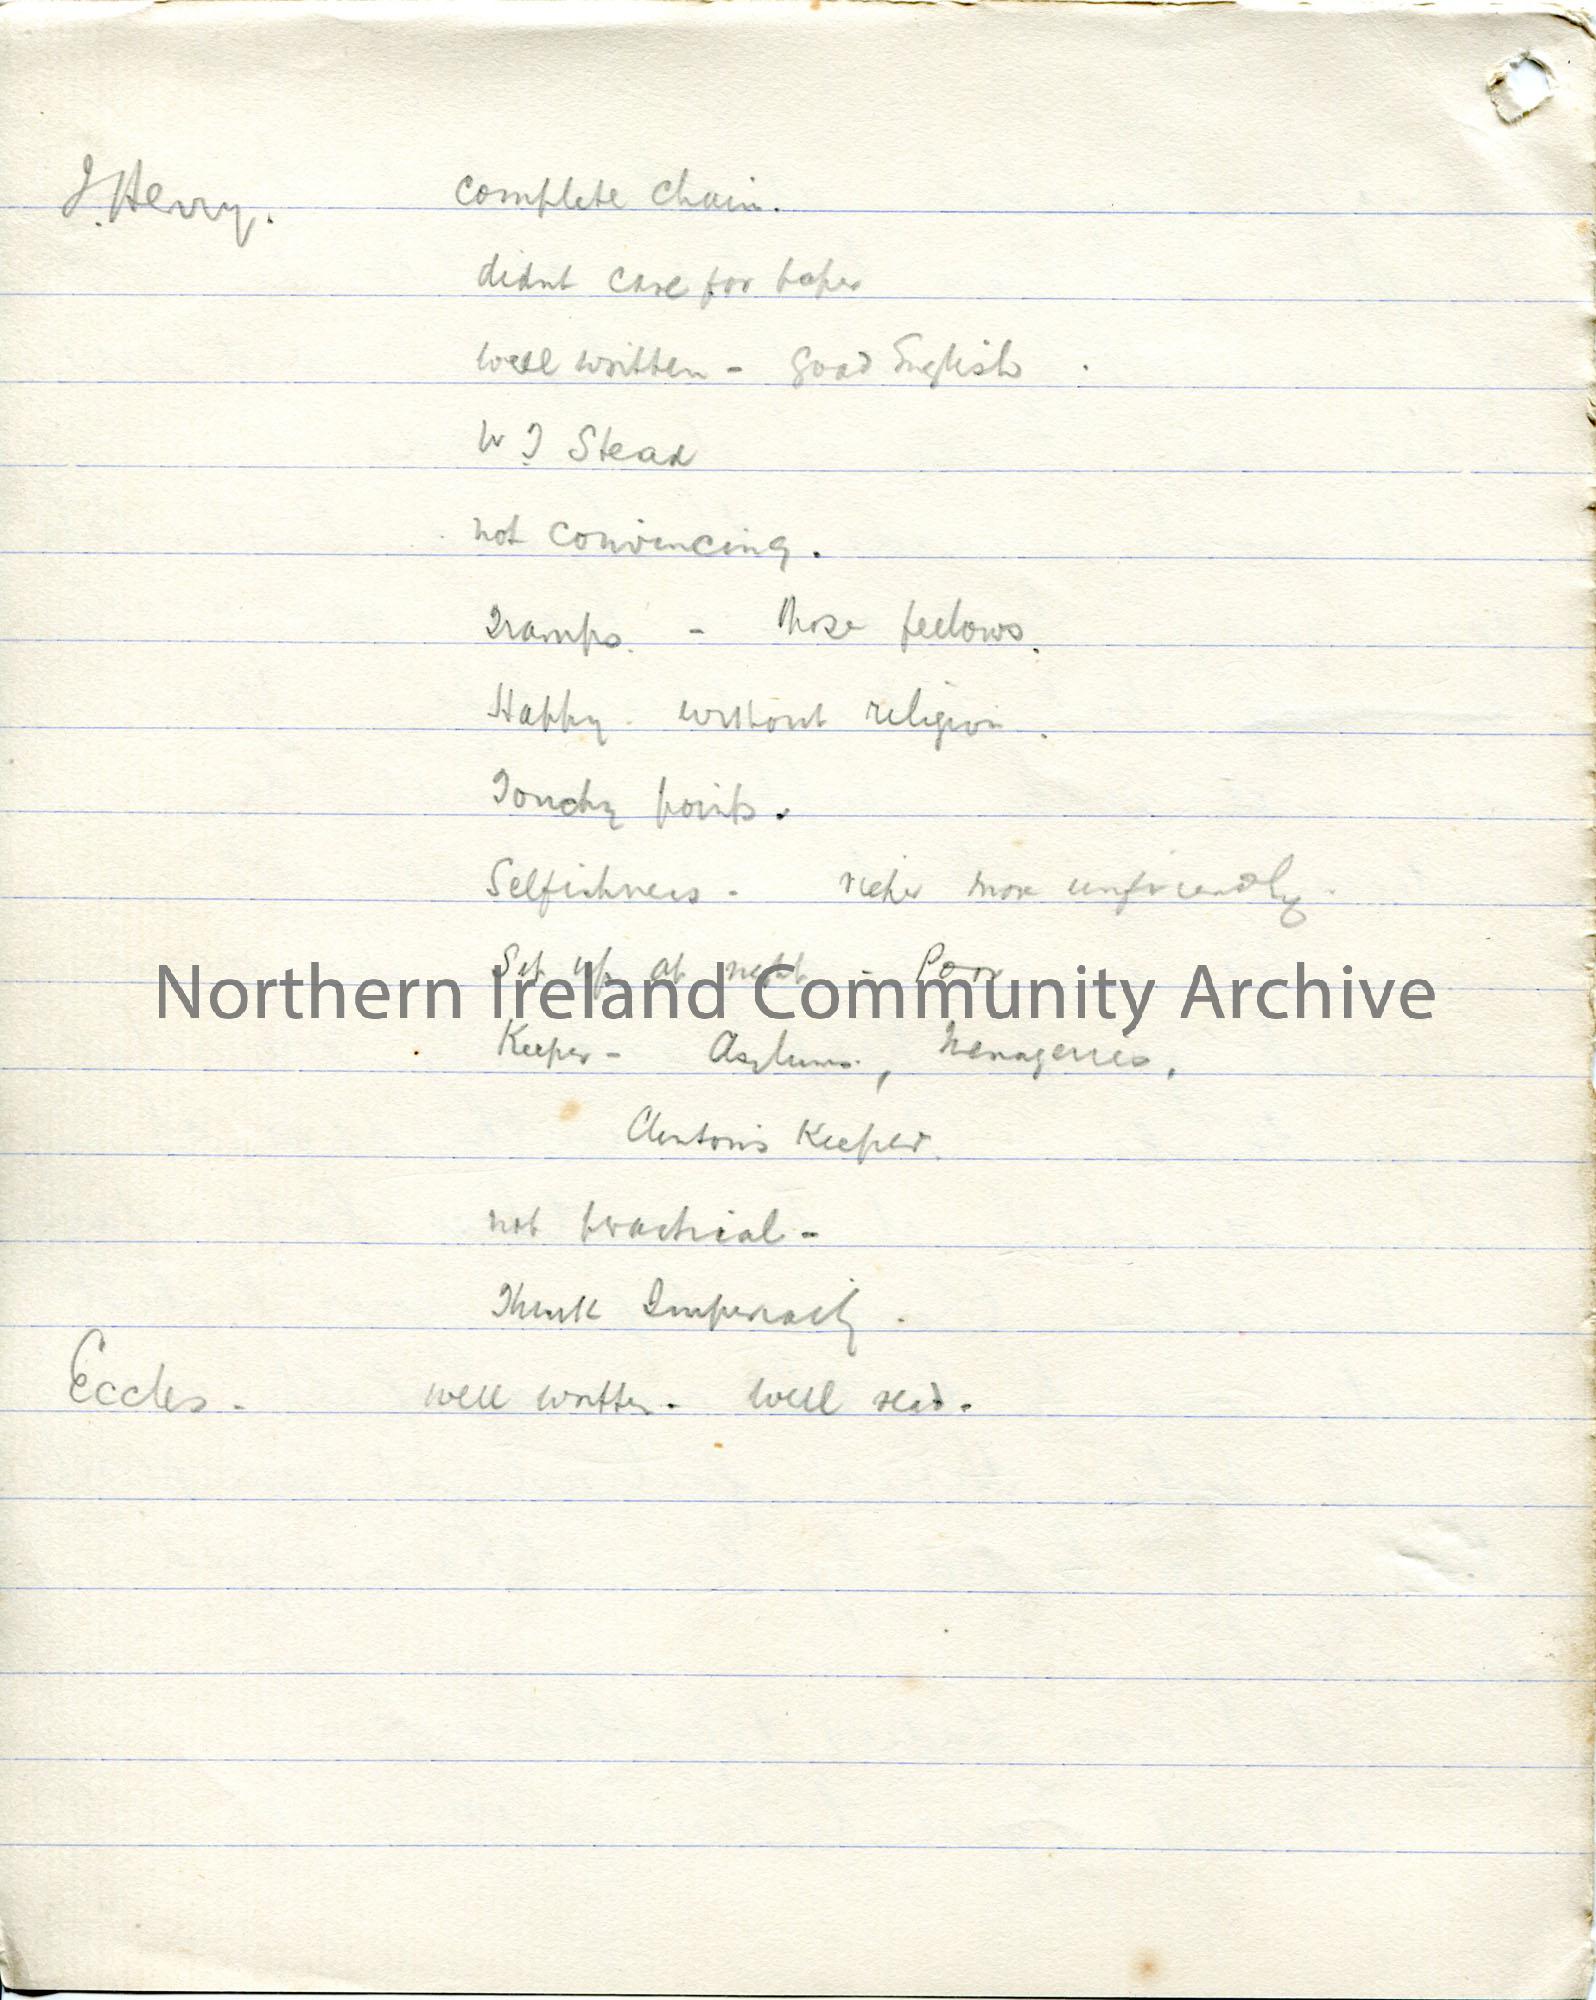 J. Henry. complete chain.
didnt care for paper
well written - good English.
W T Stead
not convincing.
Tramps. - those fellows.
Happy without religion.
Touchy points.
Selfishness - richer more unfriendly.
Sit up at night - Poor
Northern Ireland Community Archive
Keeper - Asylums, Menageries,
Keeper.
not practical -
Think Imperially.
Eccles - well written. Well read.